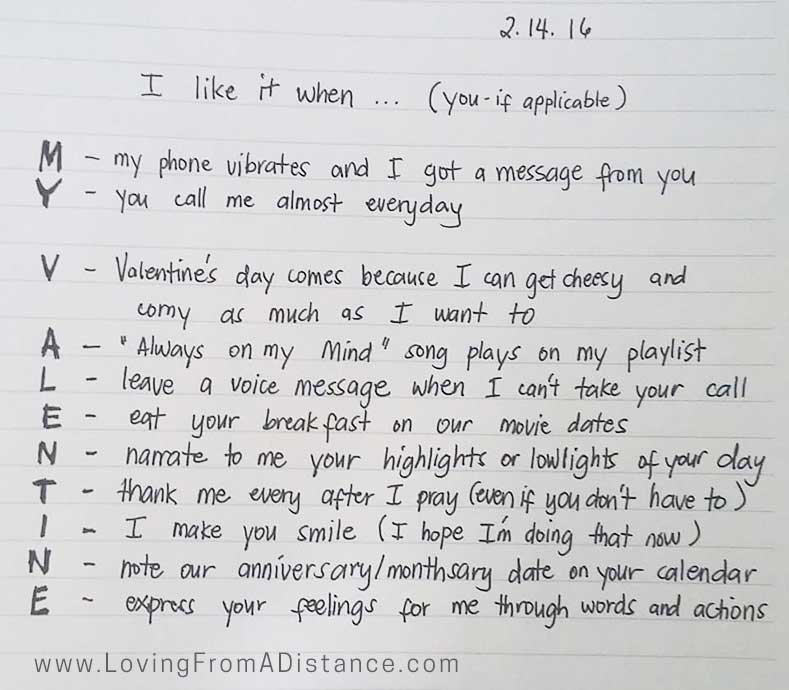 2.14.16
I like it when ... (you-if applicable)
M - my phone vibrates and I got a message from you
Y - you call me almost everyday
V - Valentine's day comes because I can get cheesy and
corny as much as I want to
A - "Always on my Mind" song plays on my playlist
L - leave a voice message when I can't take your call
E - eat your breakfast on our movie dates
N - narrate to me your highlights or lowlights of your day
T - thank me every after I pray (even if you don't have to)
I - I make you smile (I hope I'm doing that now)
N - note our anniversary/monthsary date on your calendar
E - express your feelings for me through words and actions
www.LovingFromADistance.com